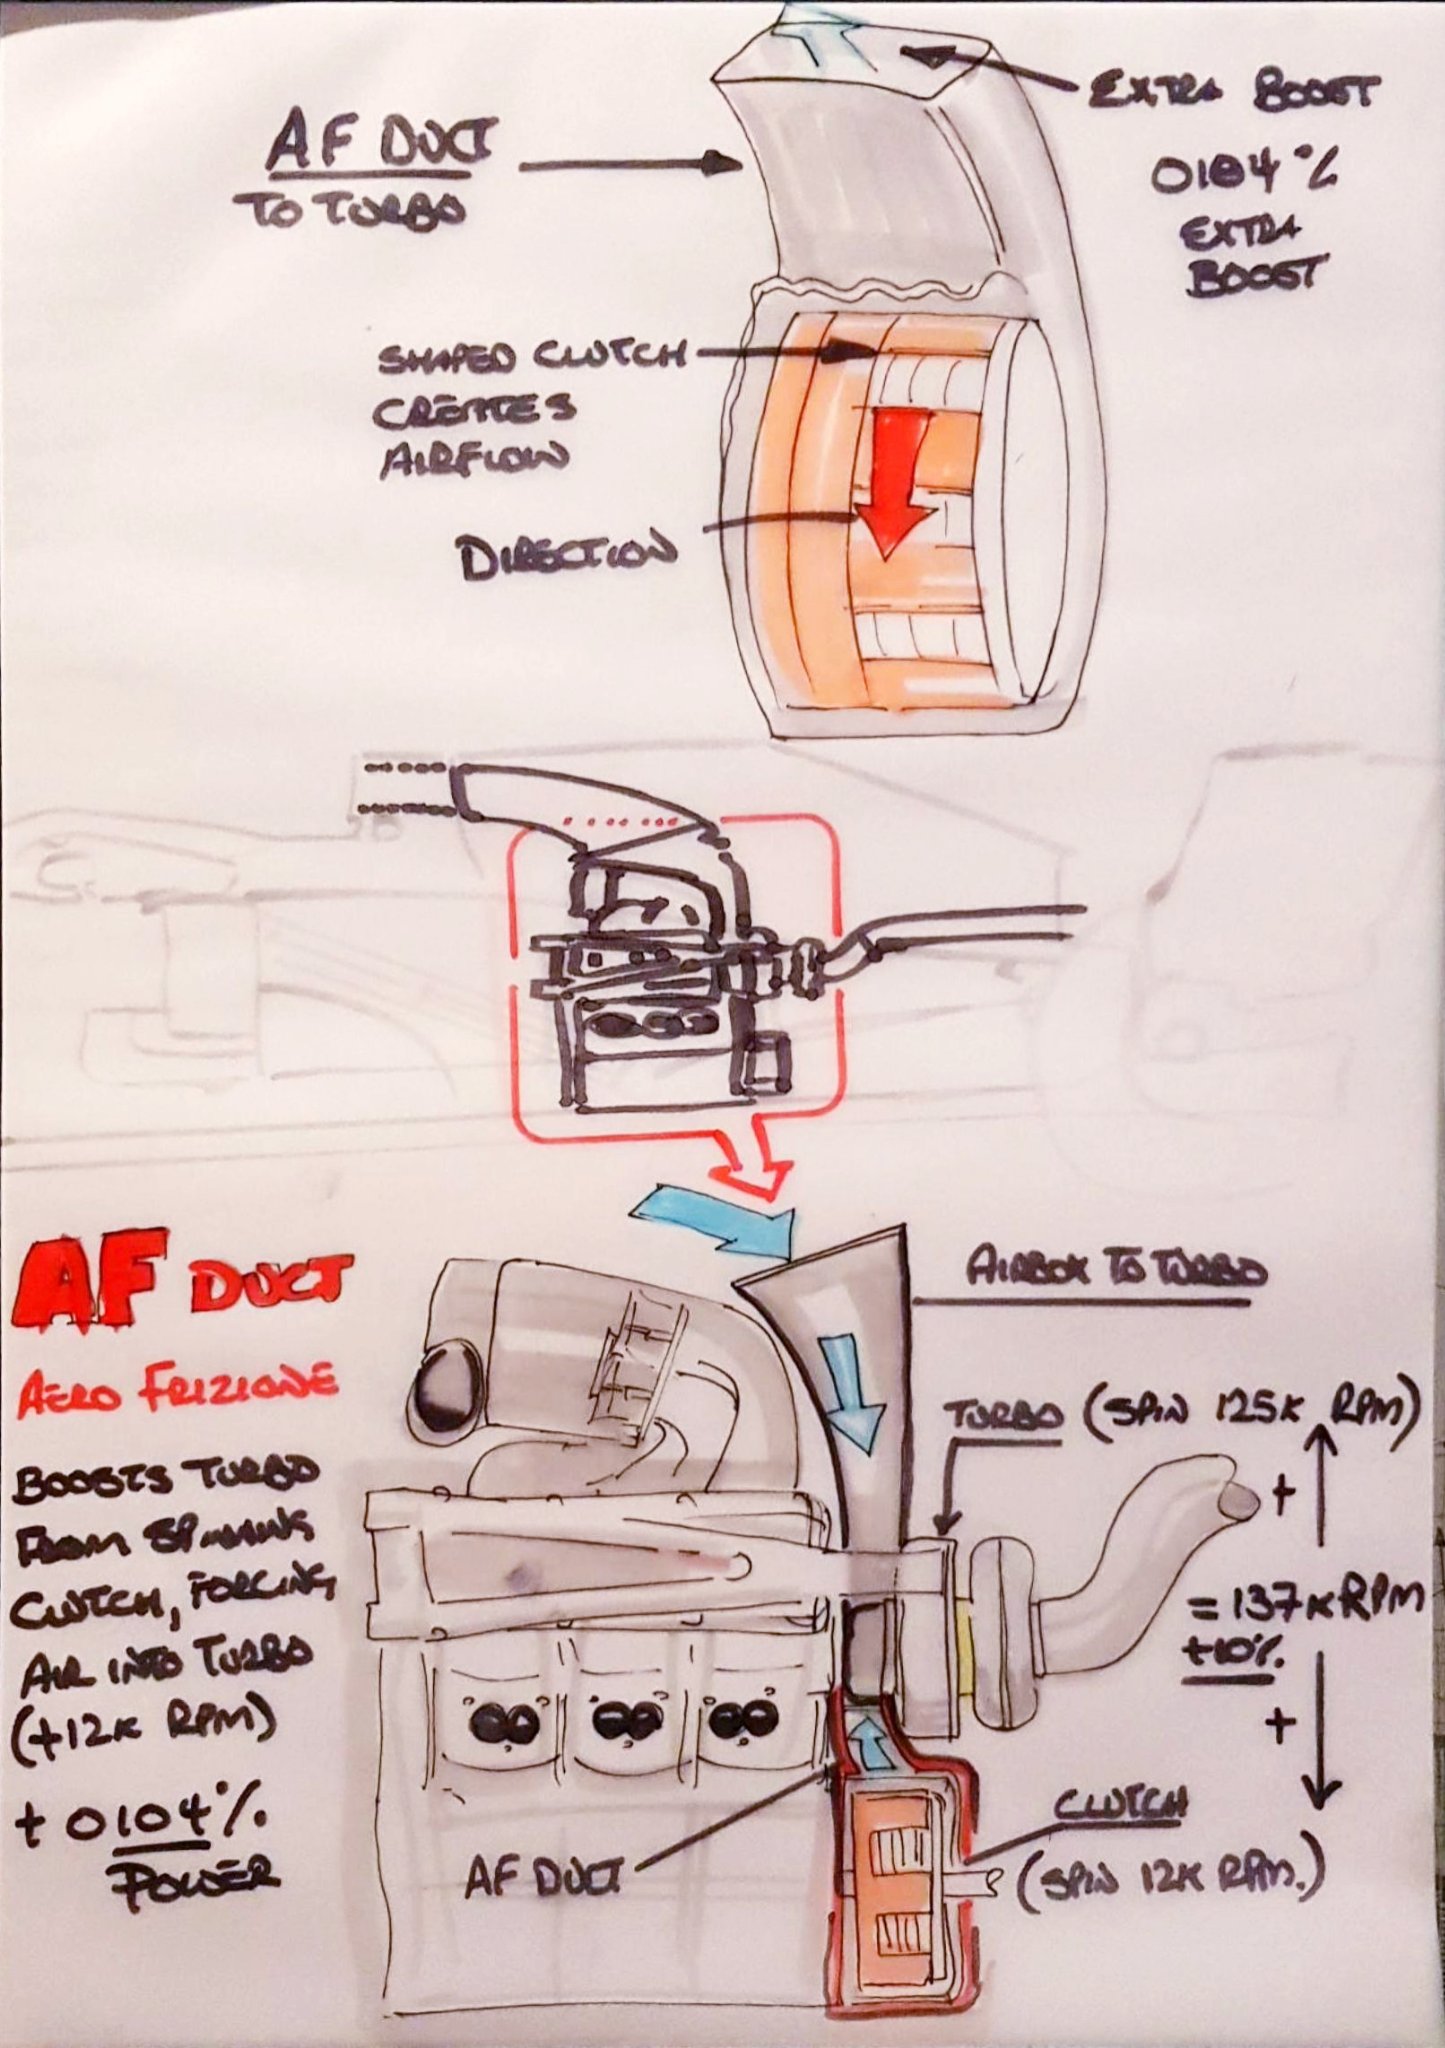 AF DUCT
TO TURBO
EXTRA BOOST
0104%
EXTRA
BOOST
SHAPED CLUTCH
CREATES
AIRFLOW
DIRECTION
AF DUCT
AERO FRIZIONE
BOOSTS TURBO
FROM SPINNING
CLUTCH, FORCING
AIR INTO TURBO
(+12K RPM)
+ 0104%
POWER
AIRBOX TO TURBO
TURBO (SPIN 125K RPM)
+
= 137K RPM
+10%
+
CLUTCH
(SPIN 12K RPM.)
AF DUCT